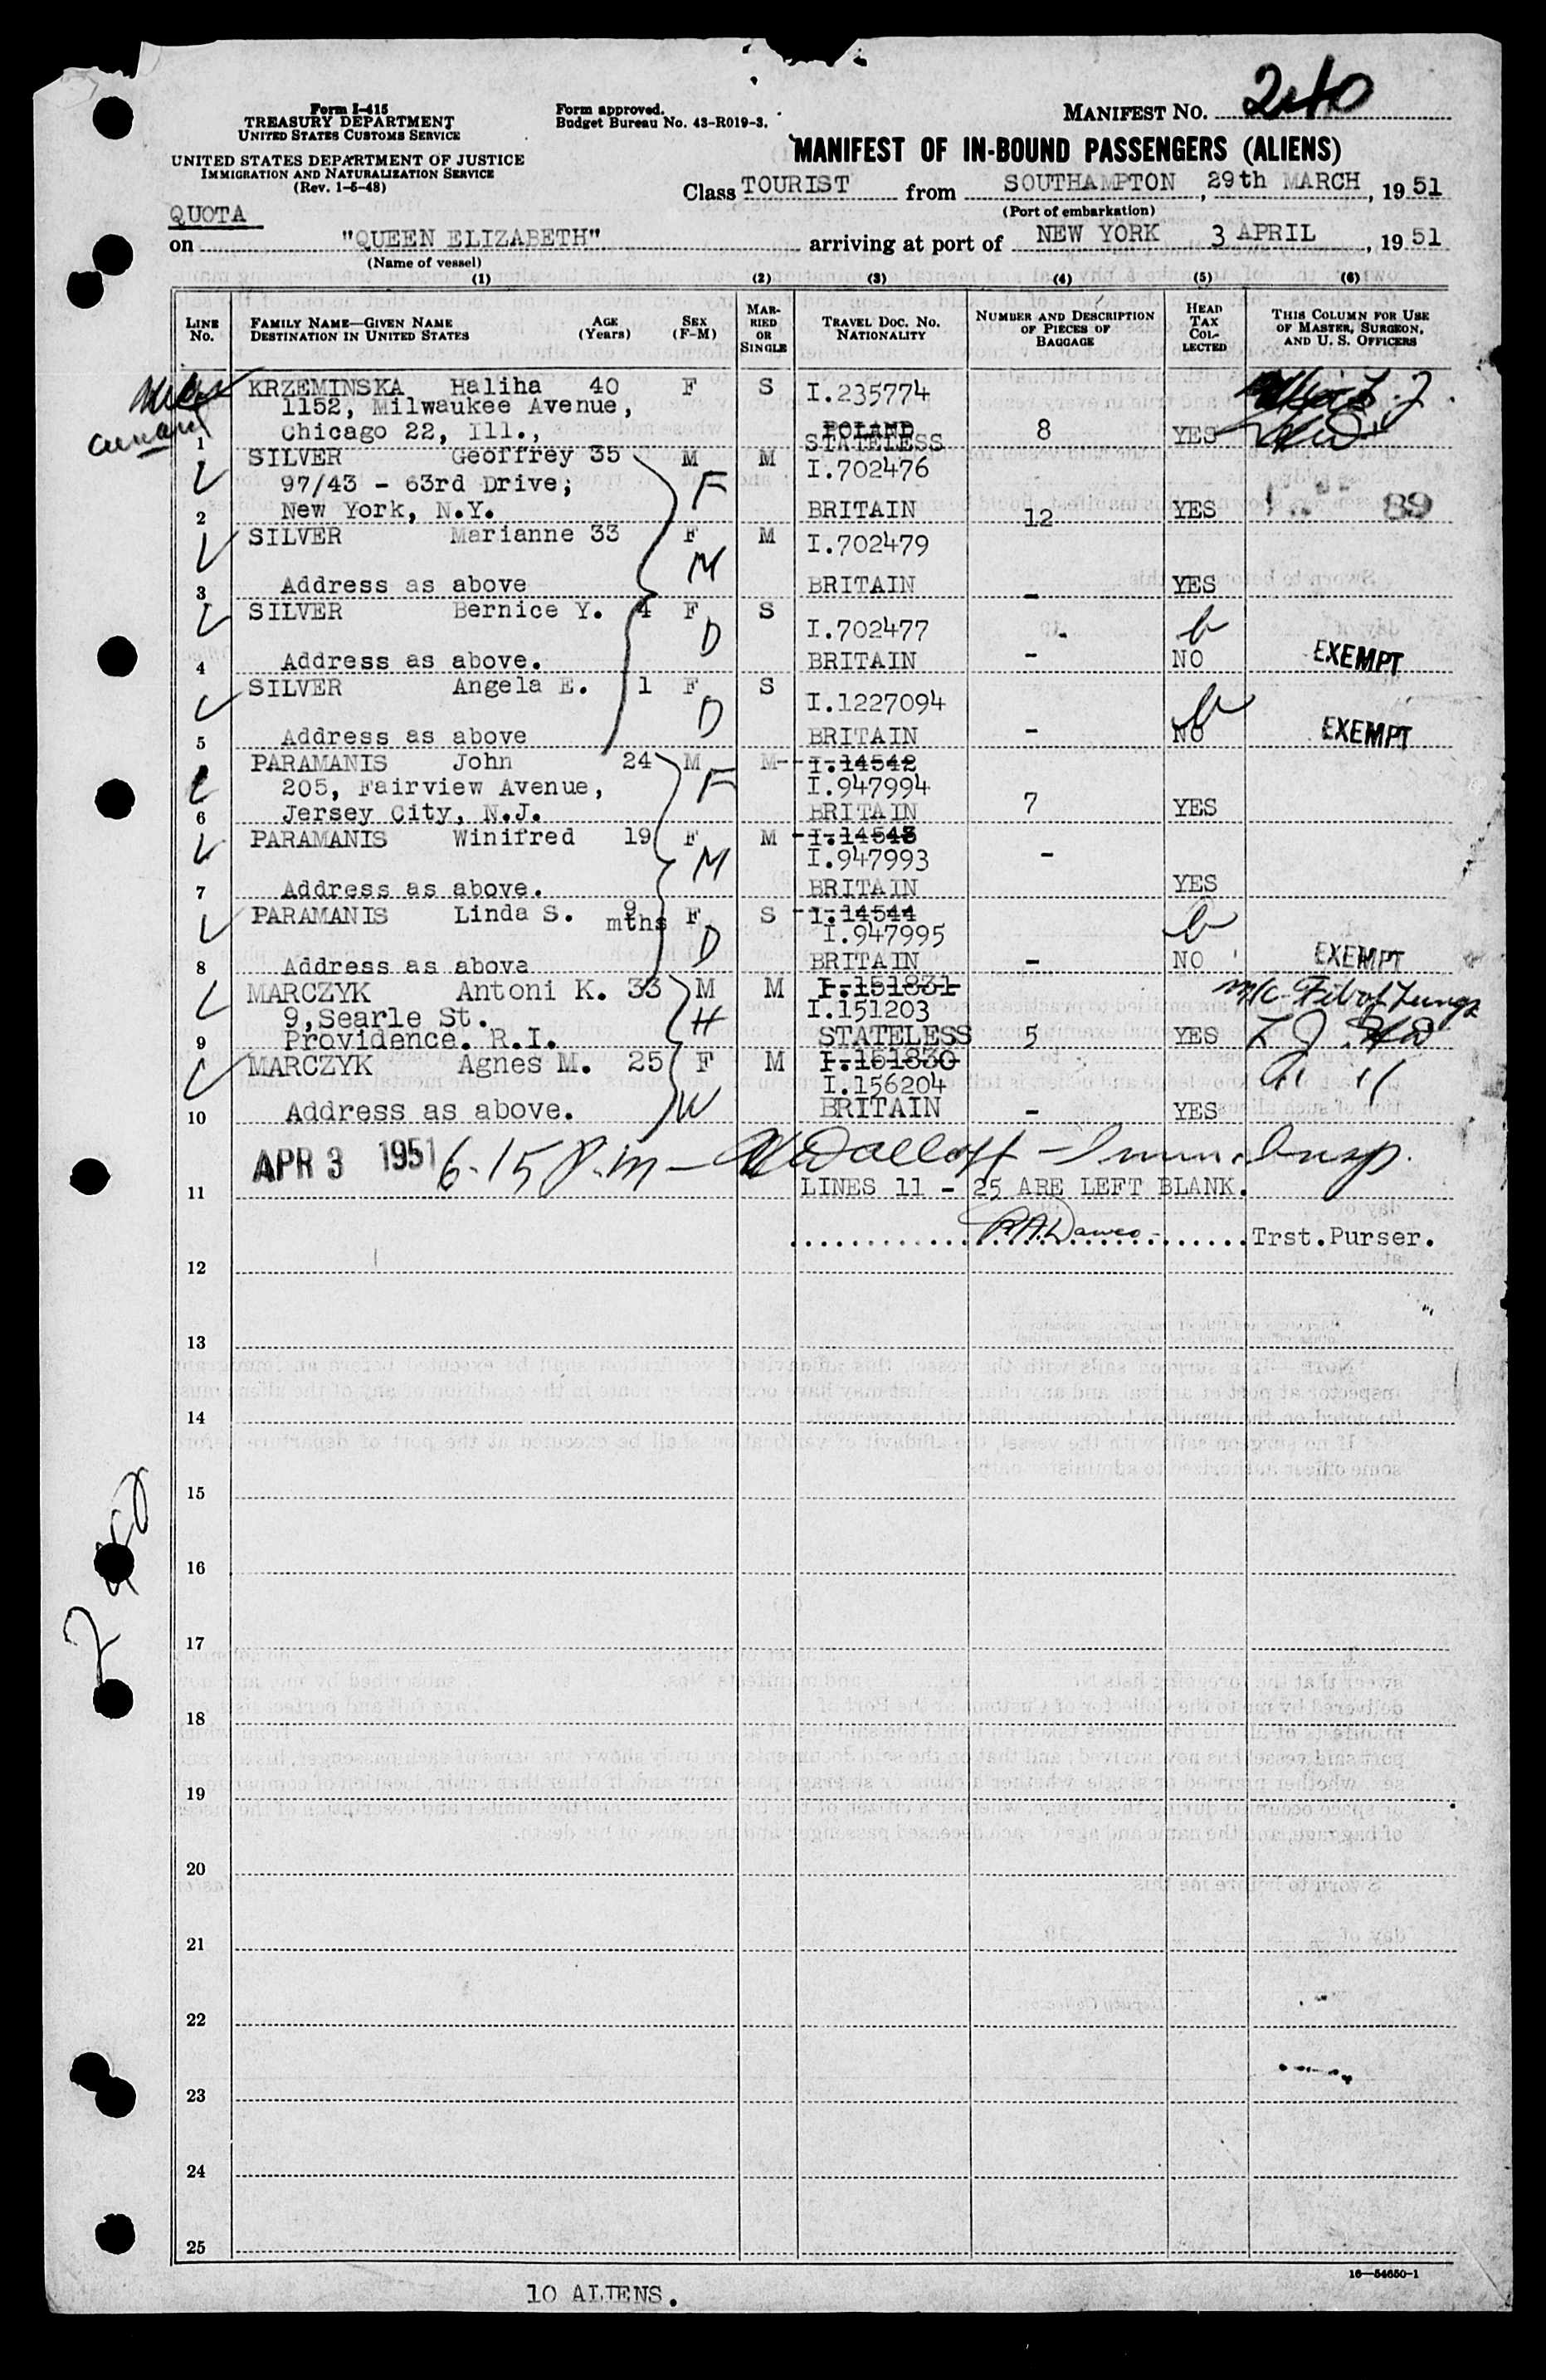 Form I-415
TREASURY DEPARTMENT
UNITED STATES CUSTOMS SERVICE
UNITED STATES DEPARTMENT OF JUSTICE
IMMIGRATION AND NATURALIZATION SERVICE
(Rev. 1-5-48)
Form approved.
Budget Bureau No. 43-R019-3.
MANIFEST NO. 240
MANIFEST OF IN-BOUND PASSENGERS (ALIENS)
Class TOURIST from SOUTHAMPTON, 29th MARCH, 1951
(Port of embarkation)
QUOTA
on "QUEEN ELIZABETH" arriving at port of NEW YORK 3 APRIL, 1951
(Name of vessel)
(1) (2) (3) (4) (5) (6)
LINE NO. FAMILY NAME—GIVEN NAME DESTINATION IN UNITED STATES AGE (Years) SEX (F-M) MARRIED OR SINGLE TRAVEL DOC. NO. NATIONALITY NUMBER AND DESCRIPTION OF PIECES OF BAGGAGE HEAD TAX COLLECTED THIS COLUMN FOR USE OF MASTER, SURGEON, AND U. S. OFFICERS
KRZEMINSKA Haliha 40 F S I.235774
1152, Milwaukee Avenue,
cunard
1 Chicago 22, Ill., POLAND STATELESS 8 YES
SILVER Geoffrey 35 M M I.702476
97/43 - 63rd Drive; F
2 New York, N.Y. BRITAIN 12 YES 89
SILVER Marianne 33 F M I.702479
M
3 Address as above BRITAIN - YES
SILVER Bernice Y. 4 F S I.702477
D
4 Address as above. BRITAIN - NO EXEMPT
SILVER Angela E. 1 F S I.1227094
D
5 Address as above BRITAIN - NO EXEMPT
PARAMANIS John 24 M M I.14542
205, Fairview Avenue, F I.947994
6 Jersey City, N.J. BRITAIN 7 YES
PARAMANIS Winifred 19 F M I.14543
M I.947993 -
7 Address as above. BRITAIN YES
PARAMANIS Linda S. 9 mths F S I.14544
D I.947995
8 Address as above BRITAIN - NO EXEMPT
MARCZYK Antoni K. 33 M M I.151831 m/c Fib of Lungs
9, Searle St. H I.151203
9 Providence. R.I. STATELESS 5 YES
MARCZYK Agnes M. 25 F M I.151830
I.156204
10 Address as above. W BRITAIN - YES
APR 3 1951 6.15 P.m -
11 LINES 11 - 25 ARE LEFT BLANK.
Trst.Purser.
12
13
14
15
16
17
18
19
20
21
22
23
24
25
16—54650-1
10 ALIENS.